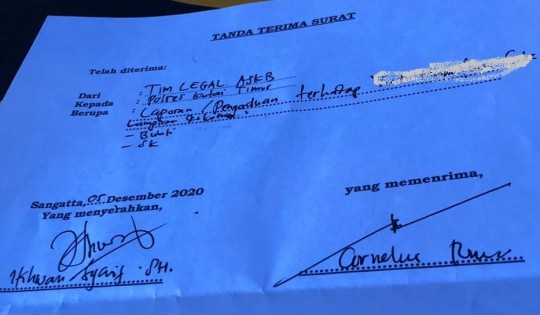 TANDA TERIMA SURAT
Telah diterima:
Dari : TIM LEGAL ASKB
Kepada : Polres Kutai Timur
Berupa : Laporan / Pengaduan terhadap
Lampiran Dokumen :
- Bukti
- SK
Sangatta, 05 Desember 2020
Yang menyerahkan,
yang memenrima,
SH.
Cornelus